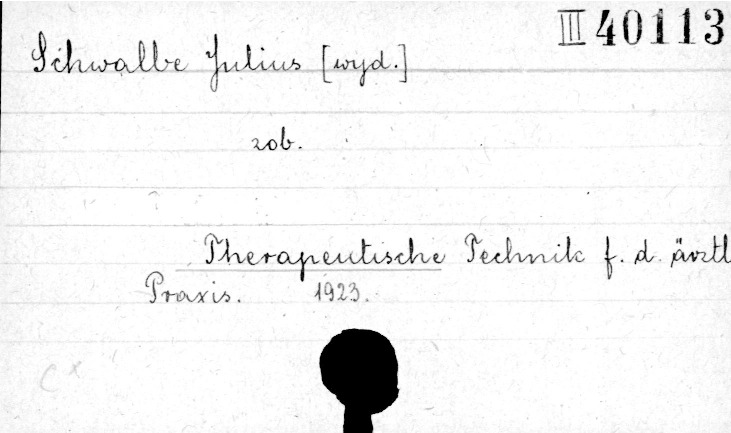 III 40113
Schwalbe Julius [wyd.]
zob.
Therapeutische Technik f. d. ärztl
Praxis. 1923.
C x